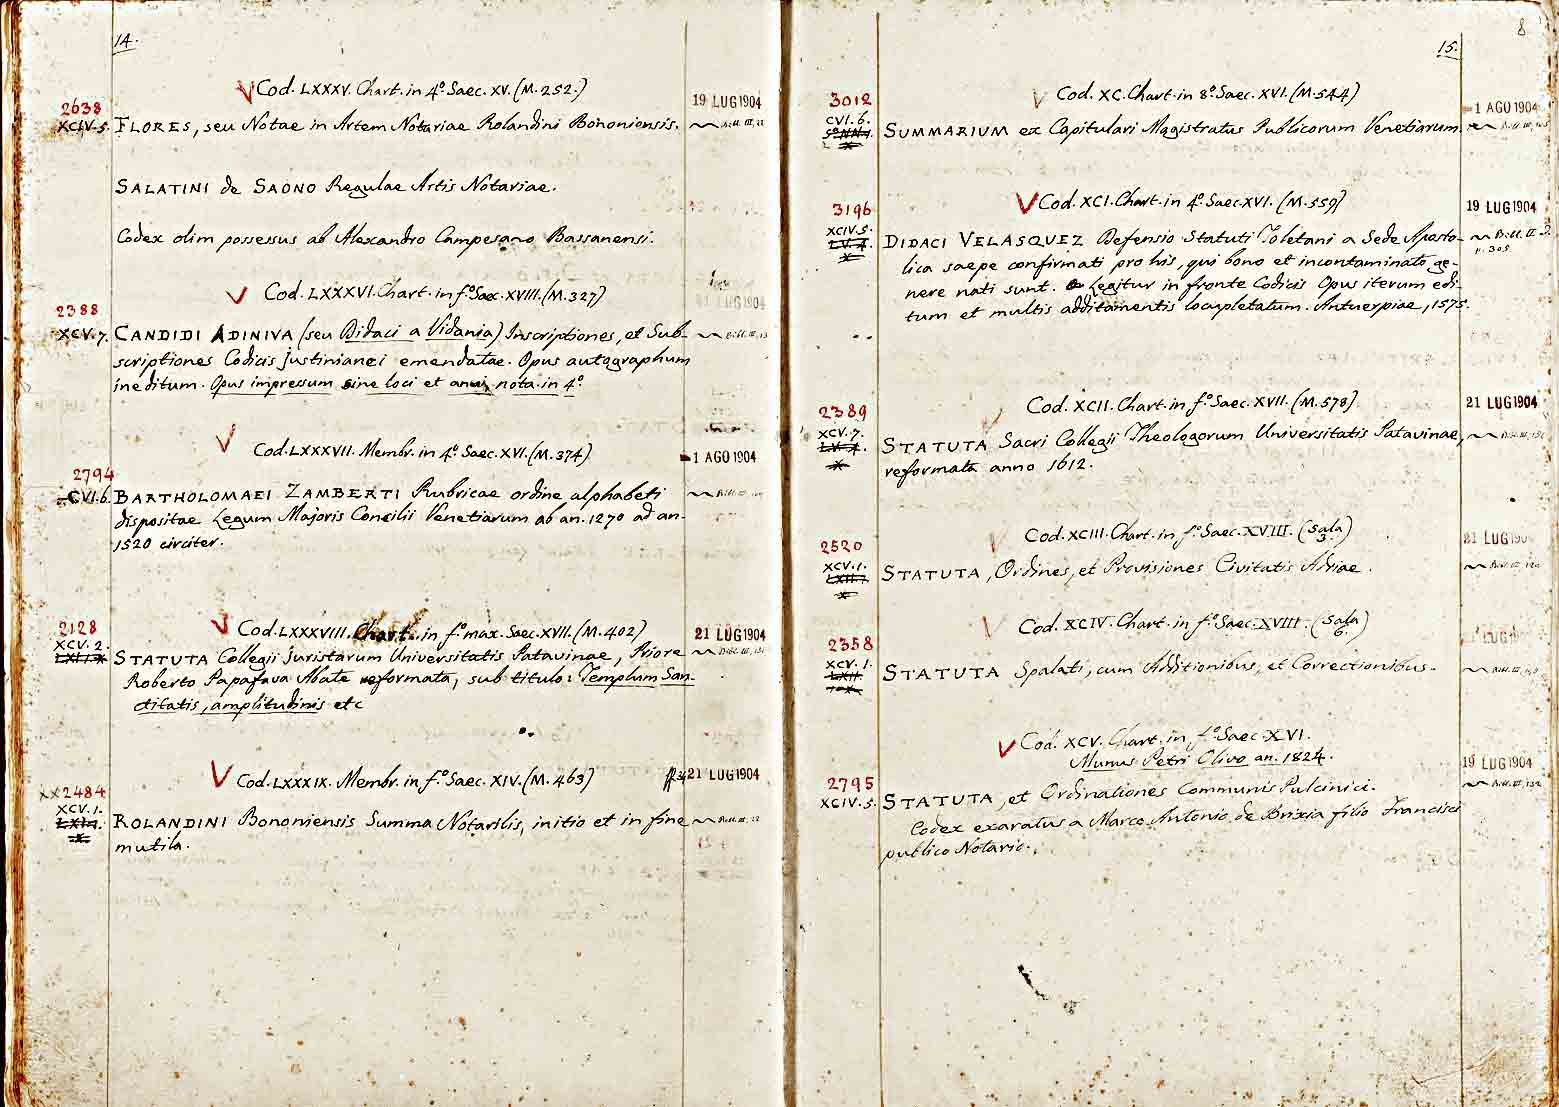 14.
Cod. LXXXV. Chart. in 4º. Saec. XV. (M. 252.)
2638
19 LUG 1904
XCIV. 5. FLORES, seu Notae in Artem Notariae Rolandini Bononiensis.
SALATINI de SAONO Regulae Artis Notariae.
Codex olim possessus ab Alexandro Campesano Bassanensi.
Cod. LXXXVI. Chart. in fº. Saec. XVIII. (M. 327)
2388
XCV. 7. CANDIDI ADINIVA (seu Didaci a Vidania) Inscriptiones, et Sub-
scriptiones Codicis Justinianei emendatae. Opus autographum
ineditum. Opus impressum sine loci et anni nota in 4º.
Cod. LXXXVII. Membr. in 4º. Saec. XVI. (M. 374)
-1 AGO 1904
2794
CVI. 6. BARTHOLOMAEI ZAMBERTI Rubricae ordine alphabeti
dispositae Legum Majoris Concilii Venetiarum ab an. 1270 ad an.
1520 circiter.
Cod. LXXXVIII. Chart. in fº. max. Saec. XVII. (M. 402)
2128
21 LUG 1904
XCV. 2.
STATUTA Collegii Juristarum Universitatis Patavinae, Priore
Roberto Papafava Abate reformata, sub titulo: Templum San-
ctitatis, amplitudinis etc
Cod. LXXXIX. Membr. in fº. Saec. XIV. (M. 463)
21 LUG 1904
2484
XCV. 1.
ROLANDINI Bononiensis Summa Notarilis, initio et in fine
mutila.
8
15.
Cod. XC. Chart. in 8º. Saec. XVI. (M. 544)
3012
-1 AGO 1904
CVI. 6.
SUMMARIUM ex Capitulari Magistratus Publicorum Venetiarum.
Cod. XCI. Chart. in 4º. Saec. XVI. (M. 559)
3196
19 LUG 1904
XCIV. 5.
DIDACI VELASQUEZ Defensio Statuti Toletani a Sede Aposto-
lica saepe confirmati pro his, qui bono et incontaminato ge-
p. 305
nere nati sunt. Legitur in fronte Codicis Opus iterum edi-
tum et multis additamentis locupletatum. Antuerpiae, 1575.
Cod. XCII. Chart. in fº. Saec. XVII. (M. 578)
2389
21 LUG 1904
XCV. 7.
STATUTA Sacri Collegii Theologorum Universitatis Patavinae,
reformata anno 1612.
Cod. XCIII. Chart. in fº. Saec. XVIII. (Sala 3.)
2520
21 LUG 190
XCV. 1.
STATUTA, Ordines, et Provisiones Civitatis Adriae.
Cod. XCIV. Chart. in fº. Saec. XVIII. (Sala 6.)
2358
XCV. 1.
STATUTA Spalati, cum Additionibus, et Correctionibus.
Cod. XCV. Chart. in fº. Saec. XVI.
Munus Petri Olivo an. 1824.
2795
19 LUG 1904
XCIV. 5.
STATUTA, et Ordinationes Communis Pulcinici.
Codex exaratus a Marco Antonio de Brixia filio Francisci
publico Notario.